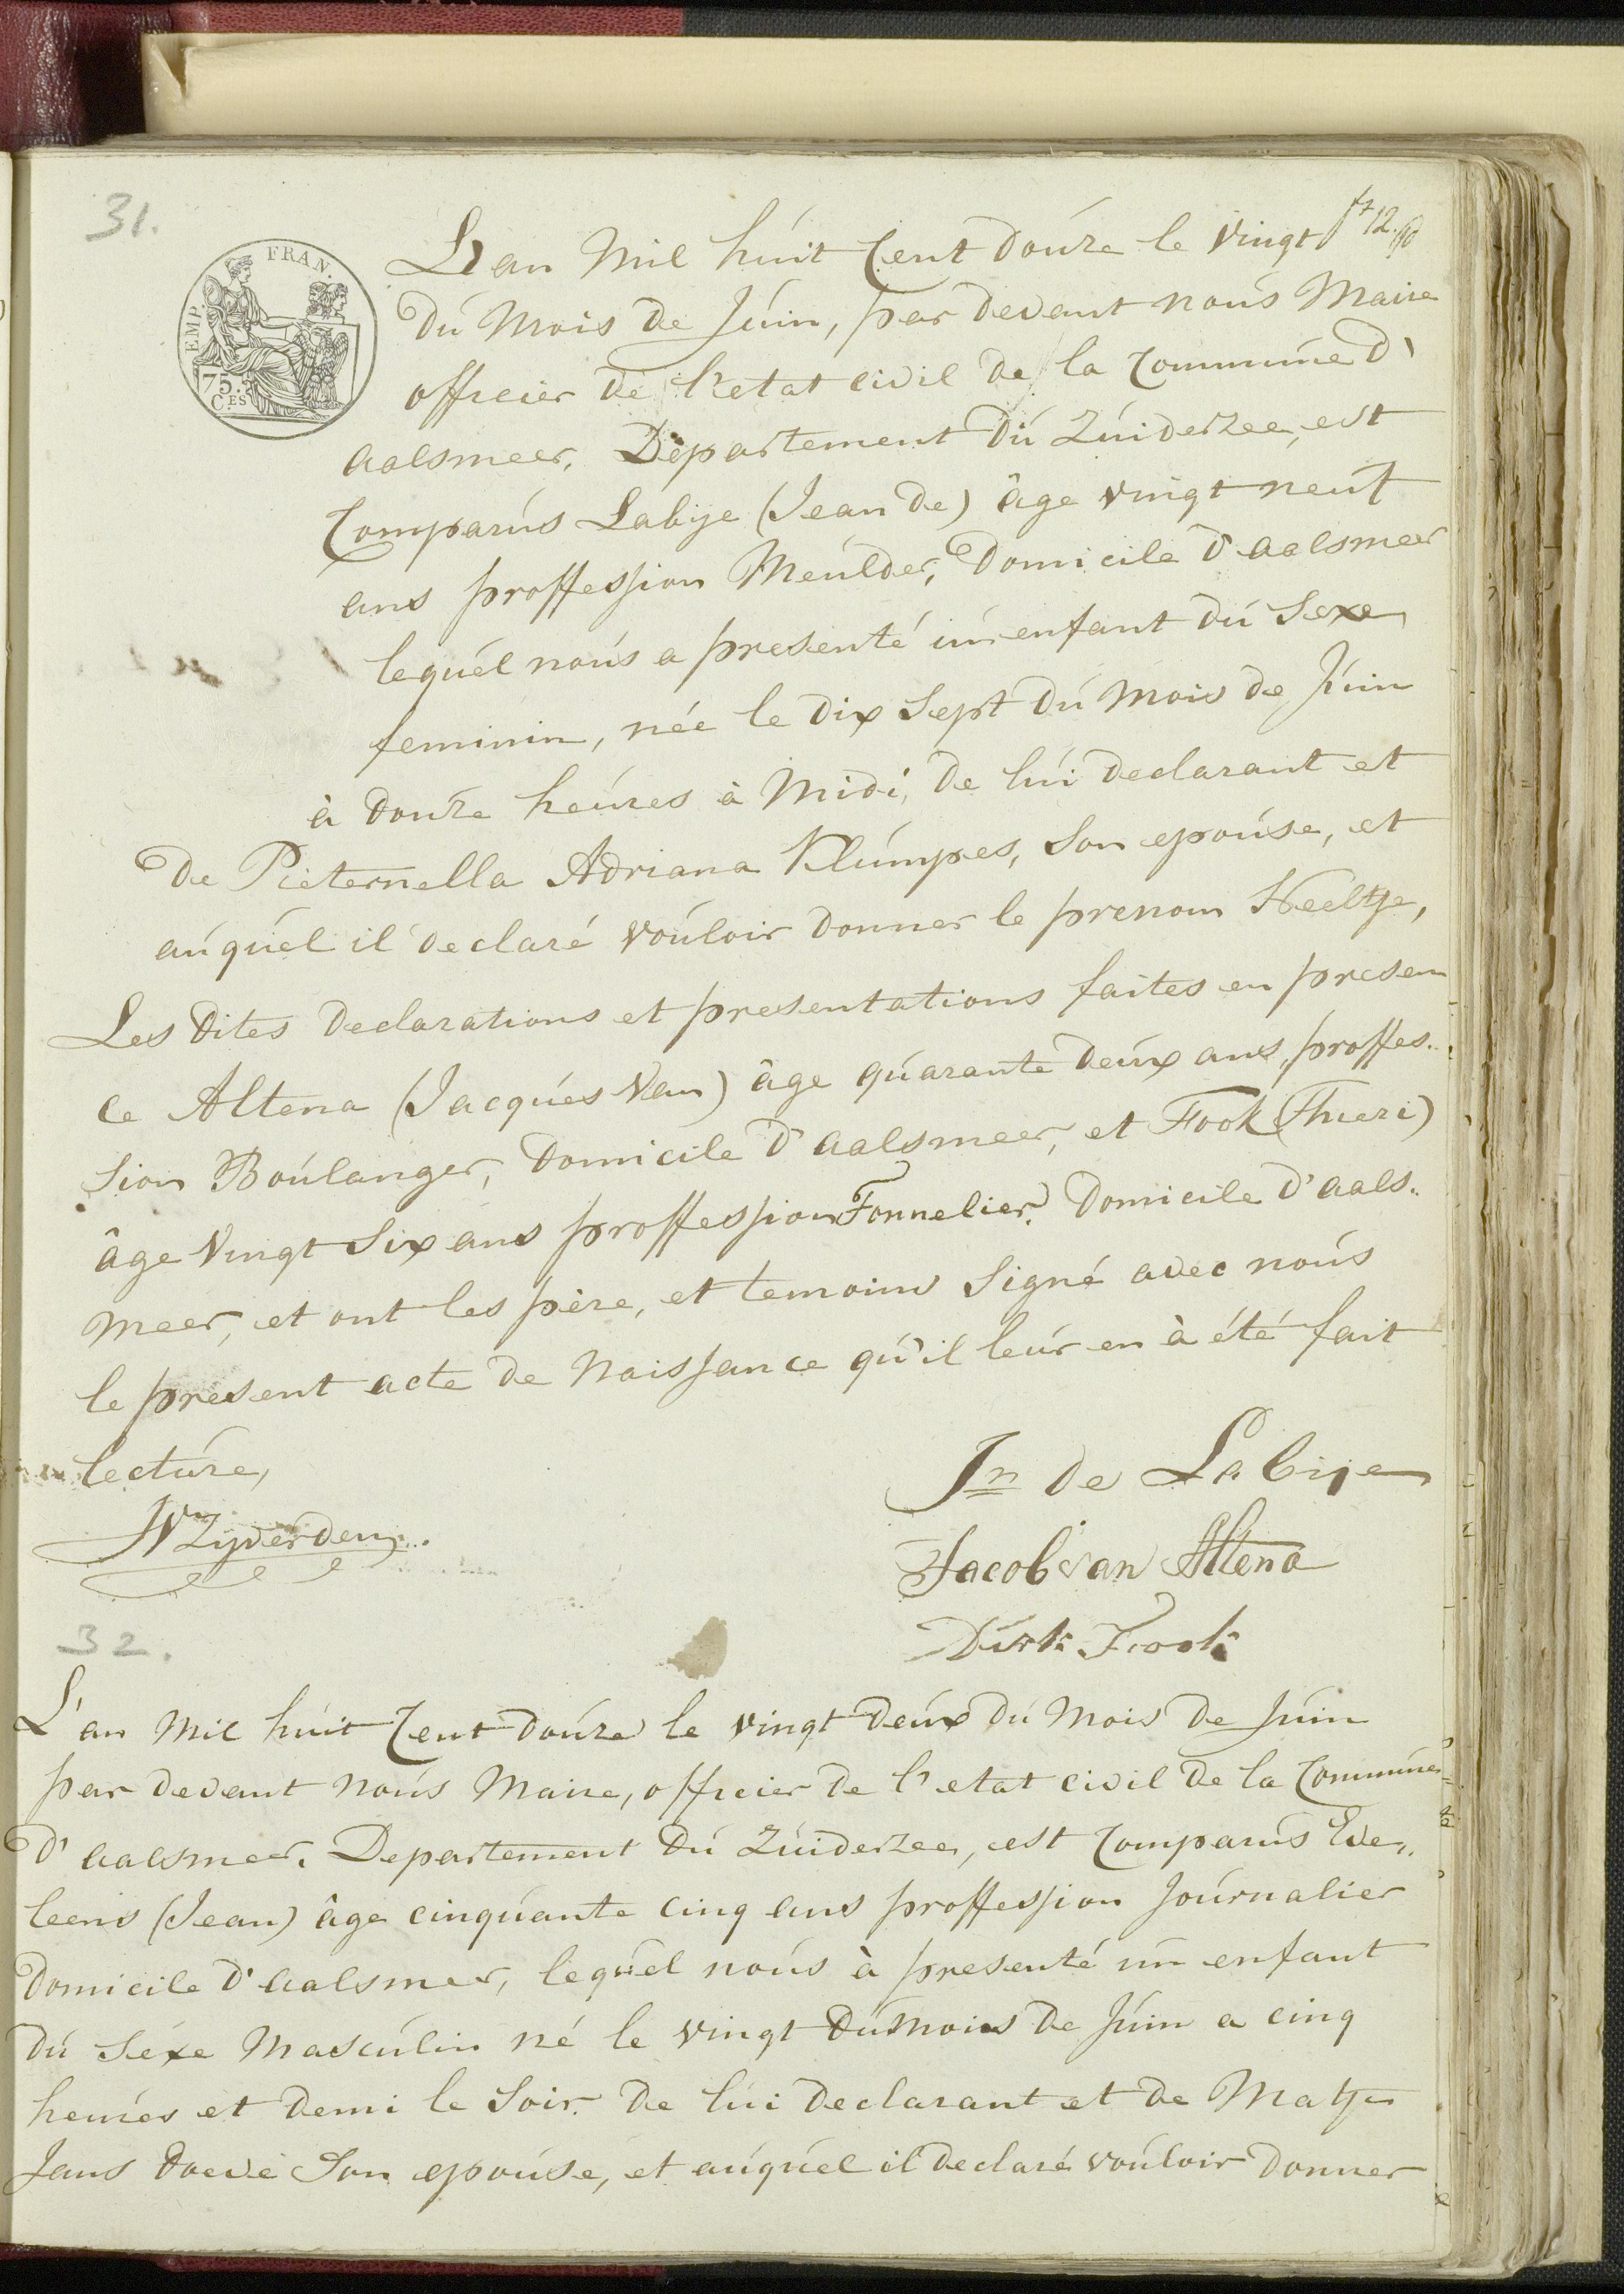 31.
fº 12. 
EMP. FRAN.
75. C.ES
L'an Mil húit Cent doúze le vingt
dú Mois de Júin, par devant noús Maire
officier de l'etat civil de la Commúne d'
aalsmeer, Departement dú Zúiderzee, est
Comparús Labije (Jean de) âge vingt neuf
ans proffession Meúlder, Domicile d'aalsmeer
lequél noús a presenté ún enfant dú Sexe
feminin, née le dix Sept dú Mois de Júin
à doúze heúres à Midi, de lúi declarant et
de Pieternella Adriana Klúmpes, Son epoúse, et
aúqúel il declaré voúloir donner le prenom Neeltje,
Les dites declarations et presentations faites en presen
ce Altena (Jacqúes van) âge qúarante deúx ans, proffes..
sion Boúlanger, domicile d'aalsmeer, et Fook (Thieri)
âge vingt Six ans proffession Tonnelier, domicile d'aals..
meer, et ont les père, et temoins Signé avec noús
le present acte de Naissance qú'il leúr en à été fait
lectúre,
Jn de Labije
JVZijverden
Jacob van Altena
Dirk Fook
32.
L'an Mil húit Cent doúze le vingt deúx dú Mois de Júin
par devant noús Maire, officier de l'etat civil de la Commúne
d'aalsmeer, Departement dú Zúiderzee, est Comparús Eve..
leens (Jean) âge cinqúante cinq ans proffession Joúrnalier
Domicile d'aalsmeer, lequél noús à presenté ún enfant
dú Sexe Mascúlin né le vingt dú Mois de Júin a cinq
heúres et demi le Soir de lúi declarant et de Matje
Jans Doeve Son epoúse, et aúqúel il declaré voúloir donner